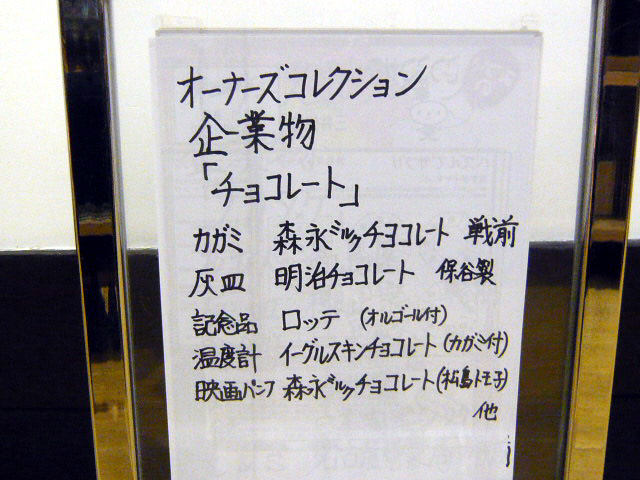 オーナーズコレクション
企業物
「チョコレート」
カガミ 森永ミルクチョコレート 戦前
灰皿 明治チョコレート 保谷製
記念品 ロッテ (オルゴール付)
温度計 イーグルスキンチョコレート(カガミ付)
映画パンフ 森永ミルクチョコレート(松島トモ子)
他